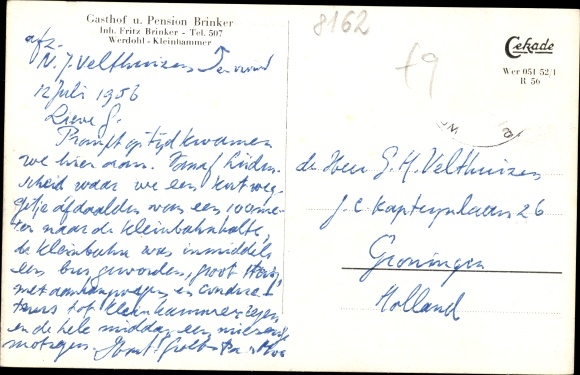 Gasthof u. Pension Brinker
Inh. Fritz Brinker - Tel. 507
Werdohl - Kleinhammer
8162
Cekade
Wer 051 52/1
R 56
f9
afz.
N. J. Velthuizen
12 Juli 1956
Lieve G.
Prompt op tijd kwamen
we hier aan. Vanaf Lüden-
scheid waar we een kort weg-
getje afdaalden van een 100 me-
ter naar de kleinbahnhalte,
de kleinbahn was inmiddels
een bus geworden, groot
met aanhangwagen en conduc-
teurs tot Kleinhammer. Regen
en de hele middag een
motregen. Pa
de Heer G. H. Velthuizen
J. C. Kapteynlaan 26
Groningen
Holland